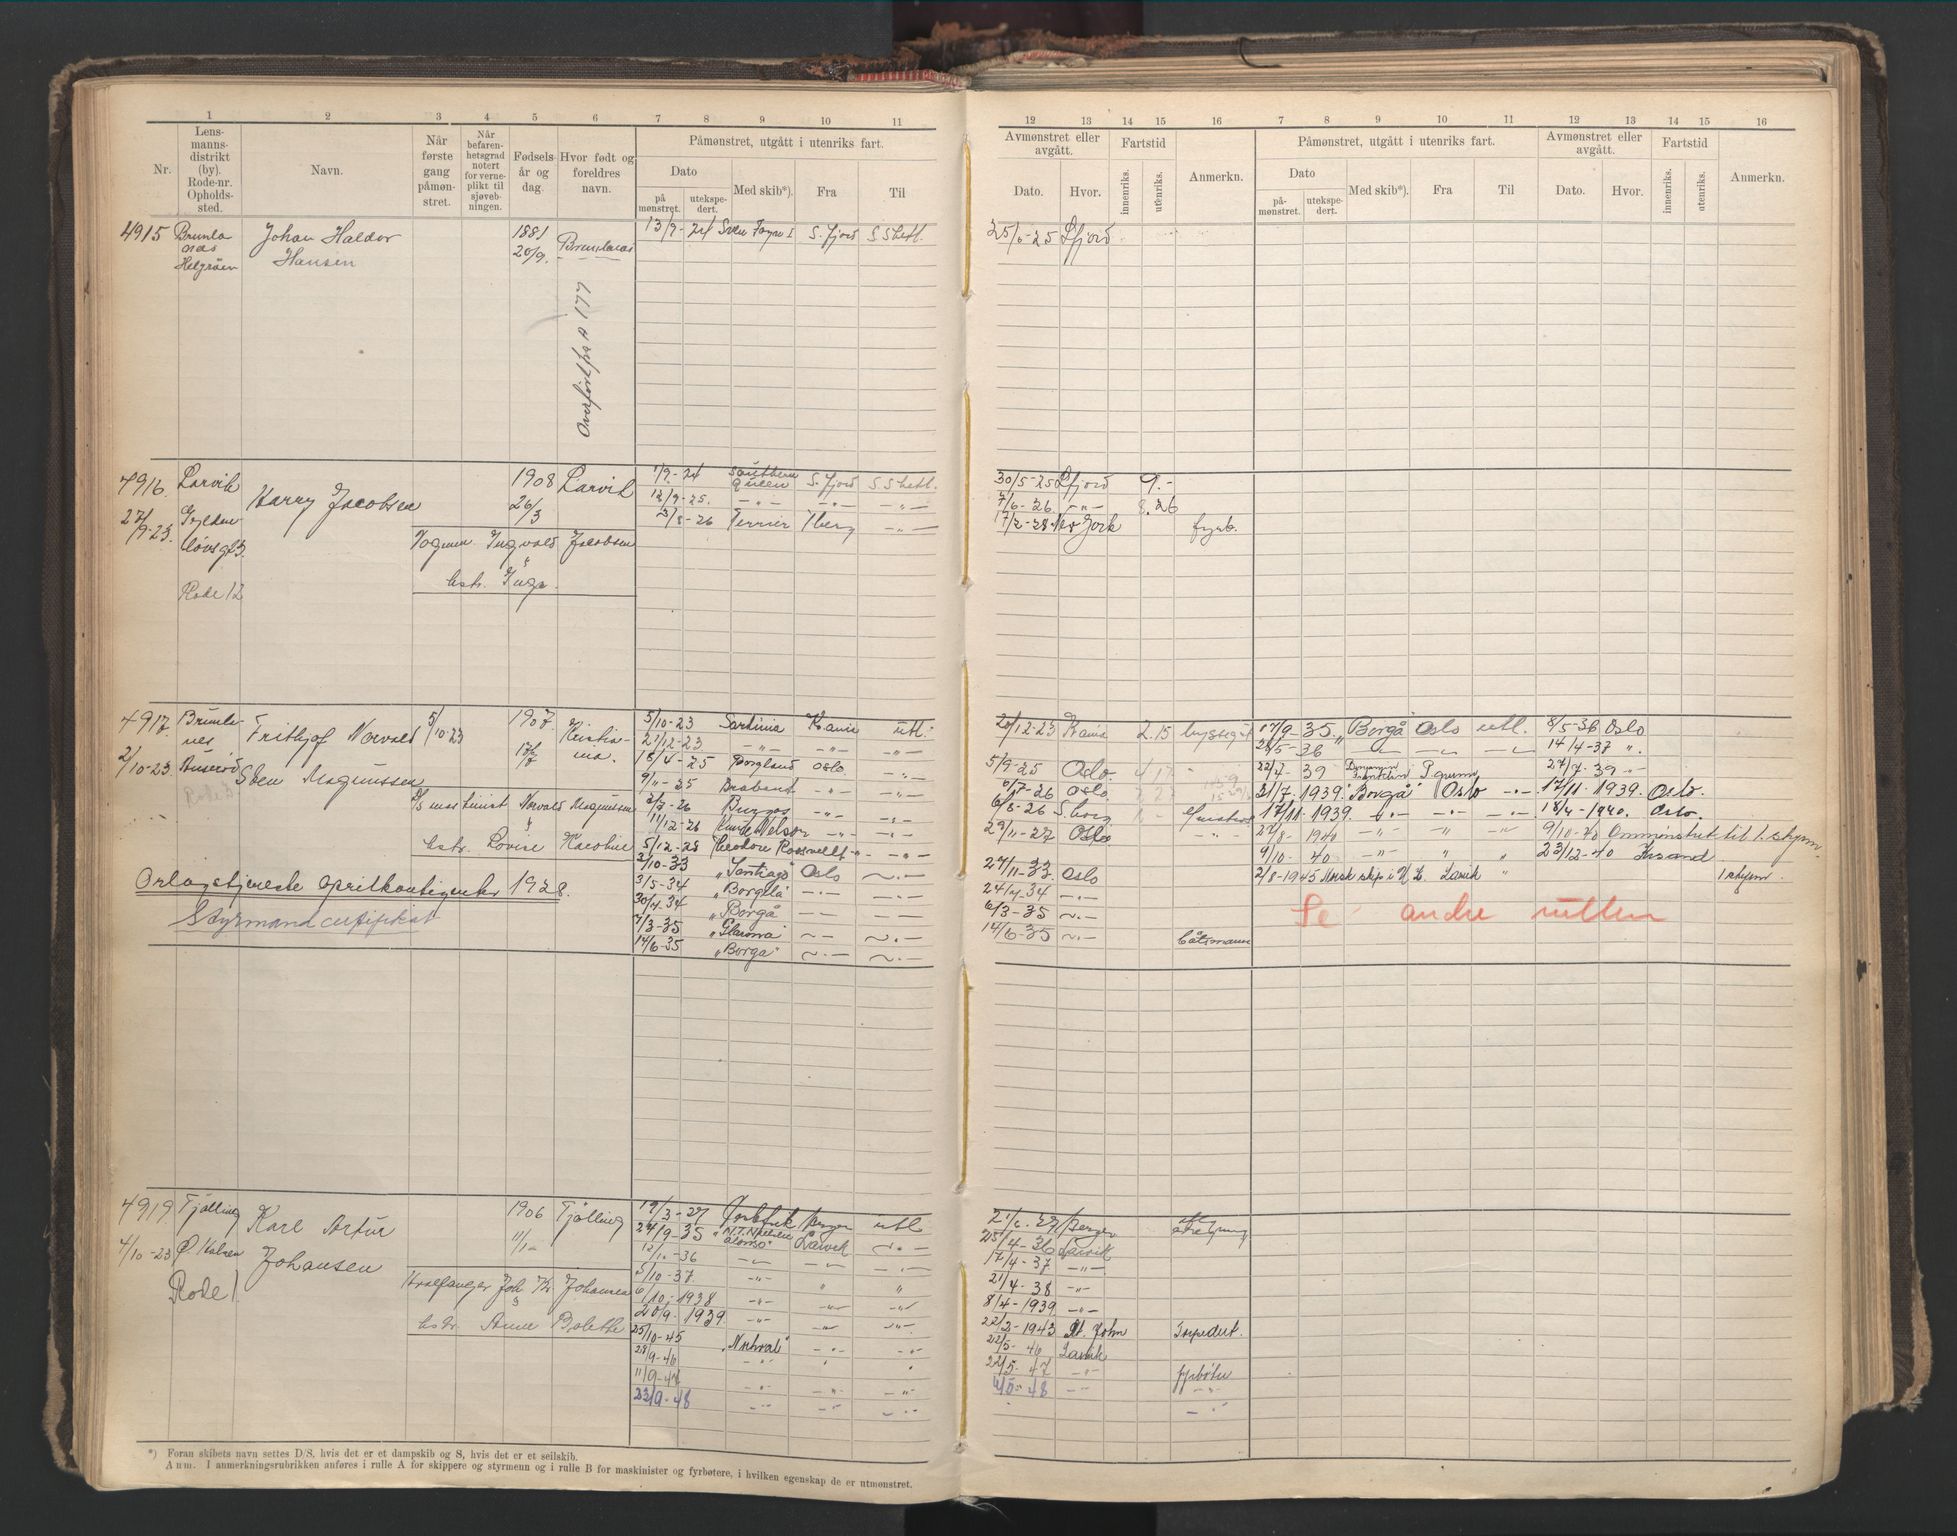 1 2 3 4 5 6 7 8 9 10 11
Nr.
Lens-
manns-
distrikt
(by).
Rode-nr.
Opholds-
sted.
Navn.
Når
første
gang
påmøn-
stret.
Når
befaren-
hetsgrad
notert
for verne-
plikt til
sjøveb-
ningen.
Fødsels-
år og
dag.
Hvor født og
foreldres
navn.
Påmønstret, utgått i utenriks fart.
Dato
på
mønstret.
utekspe-
dert.
Med skib*).
Fra
Til
4915 Brunla
nes
Helgrøen
Johan Haldor
Hansen
1881
20/9.
Brunlanes
Overført fra A 177
13/9-24 Sven Foyn I S.fjord S.Shetl.
4916 Larvik
27/9-23. Gyldenløvsgt
Rode 12
Harry Jacobsen
1908
26/3
Larvik
Vognm. Ingvald Jacobsen
hstr. Inga
1/9-24 Southern Queen S.fjord S.Shetl.
12/9-25. -"- -"- -"-
3/8-26 Terrier Tberg -"-
4917 Brunla-
nes
2/10-23
Frithjof Norvald
Sten Magnussen
5/10-23
1907
17/7
Kristia-
nia.
D/S maskinist Norvald Magnussen
hstr. Lovise Jacobine
Orlogstjeneste aprilkontigenten 1928.
Styrmandcertifikat
5/10-23 Sardinia Kania utl.
27/12-23. -"- -"- -"-
18/4-25 Borgland Oslo -"-
9/11-25 Brabant -"- -"-
2/7-26 Burgos -"- -"-
11/12-26 Knute Nelson -"- -"-
5/12-28 Theodore Roosvellt -"- -"-
3/10-33 „Santiago" Oslo -"-
3/5-34 „Borglå"
30/4-34 „Borgå
7/3-35 „Glarona"
14/6-35 „Borgå"
4919 Tjølling
4/10-23
Rode 1
Karl Artur
Johansen
1906
11/1
Tjølling
Hvalfanger Joh. Kr. Johansen
hstr. Anne Bolette
19/3-27 Bergen utl.
24/9-35 „N.T. Nielsen Alonso" Larvik
12/10-36
5/10-37
6/10-1938
20/9-1939
25/10-45 „Norhval"
28/9-46
11/9-47
23/9-48
*) Foran skibets navn settes D/S, hvis det er et dampskib og S, hvis det er et seilskib.
Anm. I anmerkningsrubrikken anføres i rulle A for skippere og styrmenn og i rulle B for maskinister og fyrbøtere, i hvilken egenskap de er utmønstret.
12 13 14 15 16 7 8 9 10 11 12 13 14 15 16
Avmønstret eller
avgått.
Dato.
Hvor.
Fartstid
innenriks.
utenriks.
Anmerkn.
Påmønstret, utgått i utenriks fart.
Dato
på-
mønstret.
utekspe-
dert.
Med skib*).
Fra
Til
Avmønstret eller
avgått.
Dato.
Hvor.
Fartstid
innenriks.
utenriks.
Anmerkn.
25/6-25 Sfjord
30/5-25 Sfjord 9.-
7/6-26. -"- 8.26
17/2-28 New York fyrb.
20/12-23 Kania 2.15 byssegut
5/9-25 Oslo 4/17
6/7-26 Oslo
6/8-26 S.borg
29/11-27 Oslo
27/11-33 Oslo
24/4-34
6/3-35
14/6-35 båtsmann
17/9-35 „Borgå Oslo utl. 8/5-36 Oslo
28/5-36 14/4-37 ".
22/7-39 Benjamin Franklin P.grunn 27/7-39 -"-
21/7.1939. „Borgå" Oslo -"- 17/11.1939. Oslo.
17/11.1939. -"- -"- -"- 18/4-1940. Oslo.
27/8-1940 -"- " " 9/10-40 Ommønstret til 1.styrm.
9/10-40 -"- " " 23/12-40 Krsand
2/8-1945 Norsk skip i N.Z. Larvik " 1 styrm.
Se andre rullen
21/6.27 Bergen
25/4-36 Larvik
17/4-37 -"-
21/4-38 -"-
8/4-1939 -"-
22/2-1943 St. John Torpedert.
22/5-46 Larvik
22/5-47 -"- fyrbøter
6/5-48 -"- -"-